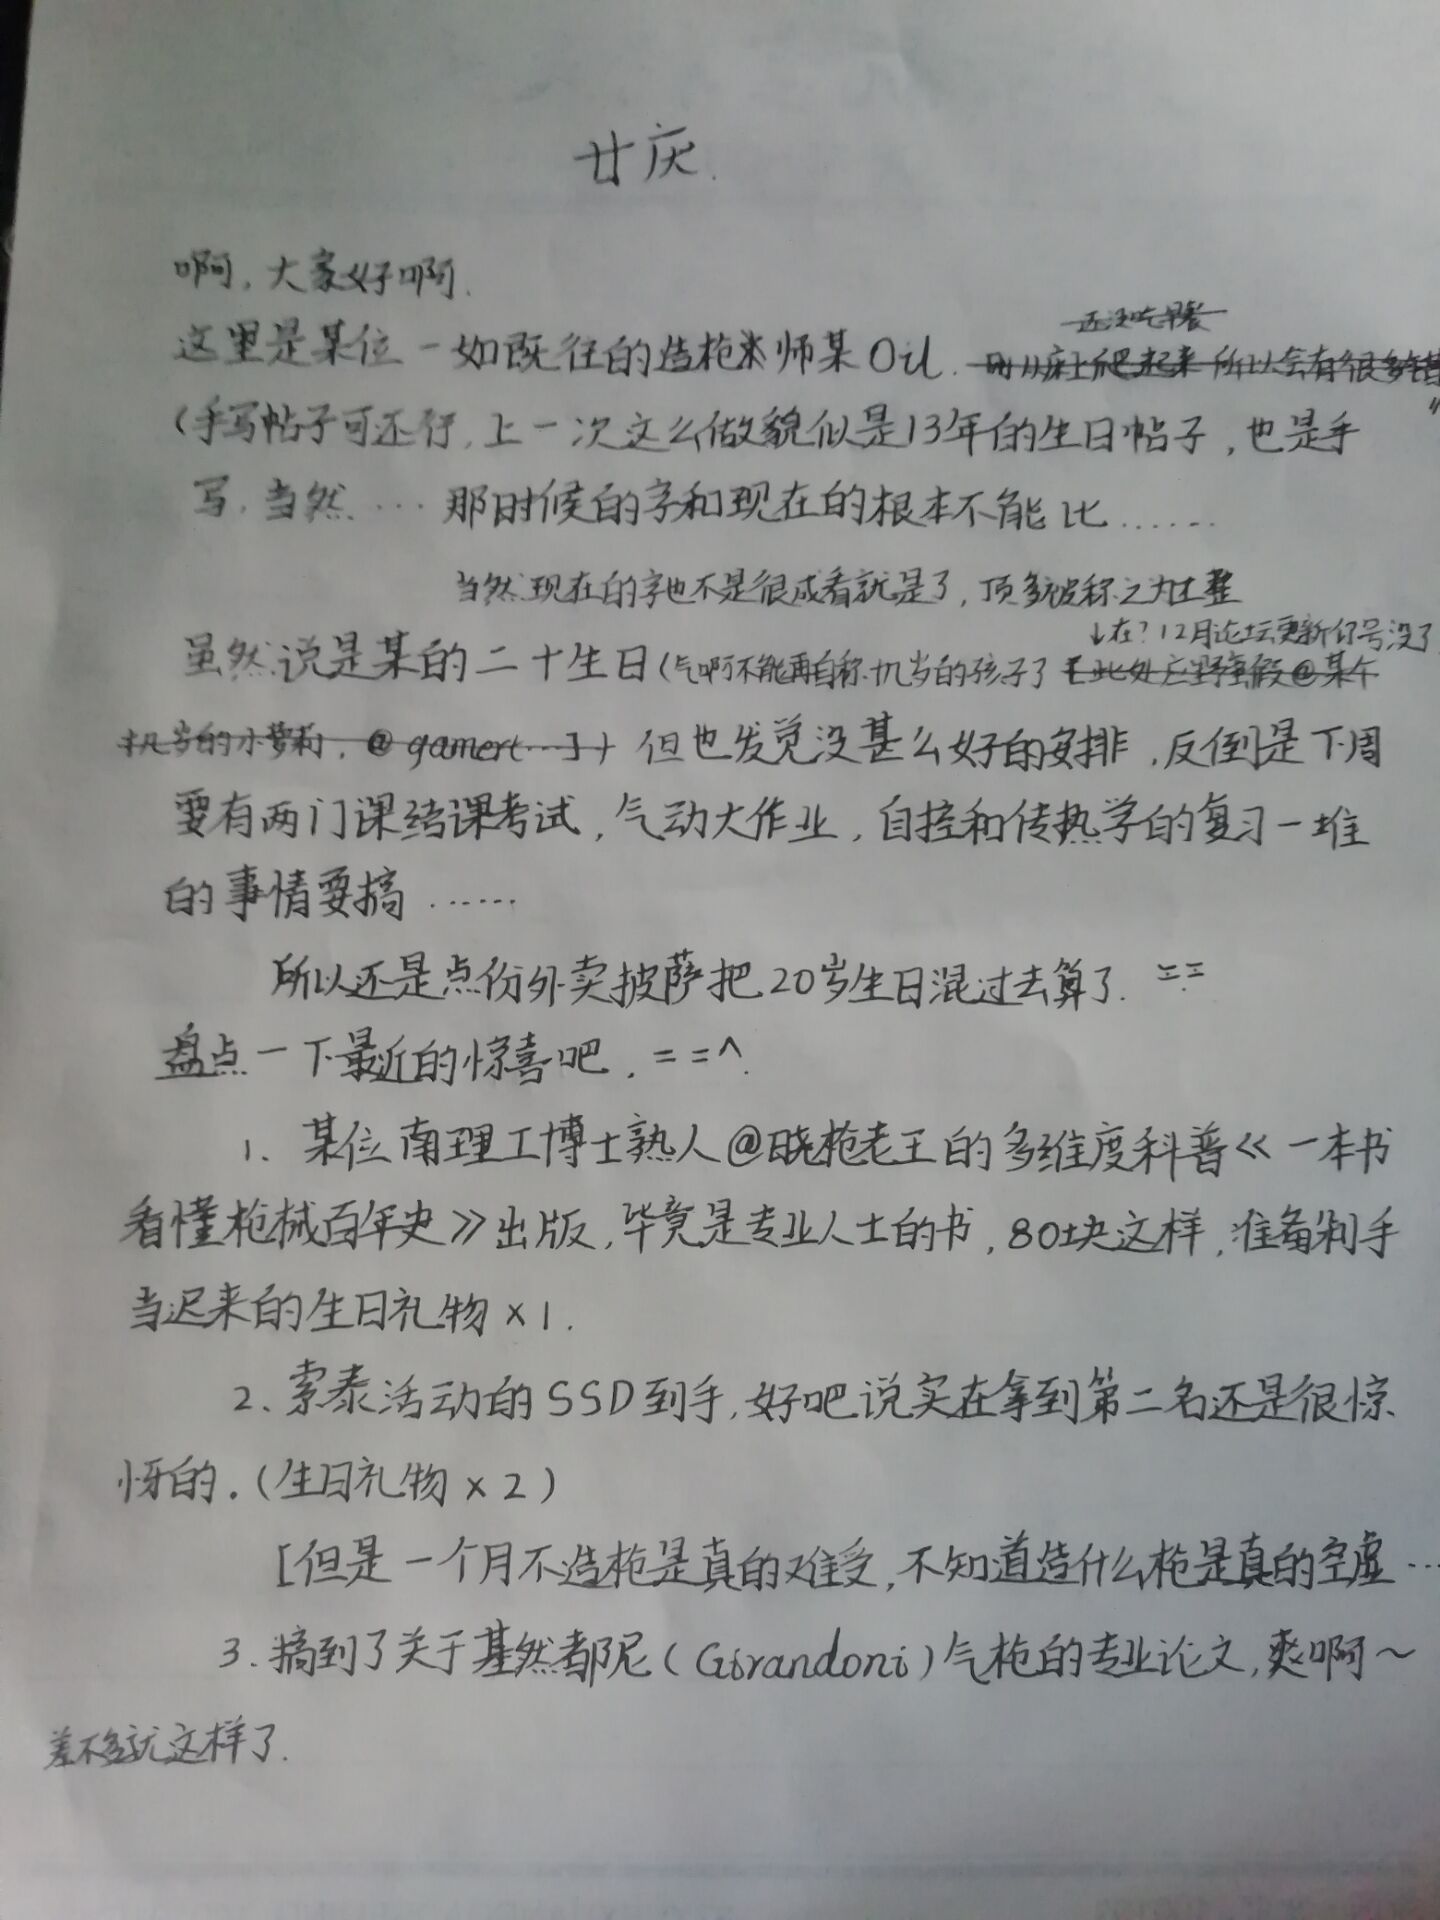 廿庆.
啊,大家好啊.
还没吃早餐
这里是某位一如既往的造枪 师某Oil. 刚从床上爬起来 所以会有很多错
(手写帖子可还行,上一次这么做貌似是13年的生日帖子,也是手
写,当然…… 那时候的字和现在的根本不能比……
当然现在的字也不是很成看就是了,顶多被称之为工整
↓在?12月论坛更新何号没了
虽然说是某的二十生日(气啊不能再自称十几岁的孩子了 【此处 @某个
十几岁的小萝莉,@gamert…】) 但也发觉没甚么好的安排,反倒是下周
要有两门课结课考试,气动大作业,自控和传热学的复习一堆
的事情要搞……
所以还是点份外卖披萨把20岁生日混过去算了. ==
盘点一下最近的惊喜吧. ==^.
1. 某位南理工博士熟人@晓枪老王的多维度科普《一本书
看懂枪械百年史》出版,毕竟是专业人士的书,80块这样,准备剁手
当迟来的生日礼物×1.
2. 索泰活动的SSD到手,好吧说实在拿到第二名还是很惊
讶的.(生日礼物×2)
[但是一个月不造枪是真的难受,不知道造什么枪是真的空虚…
3. 搞到了关于基然都尼(Girandoni)气枪的专业论文,爽啊~
差不多就这样了.